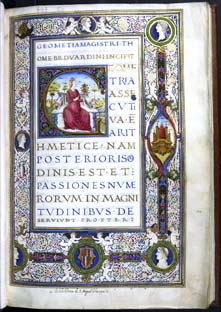 GEOMETIA MAGISTRI TH
OME BRDVARDINI INCIPIT
GEOME
TRIA
ASSE
CVTI
VA E
ARIT
HMETICE NAM
POSTERIORIS O
DINIS EST ET
PASSIONES NVME
RORVM IN MAGNI
TVDINIBVS DE
SERVIVNT PROPTER I